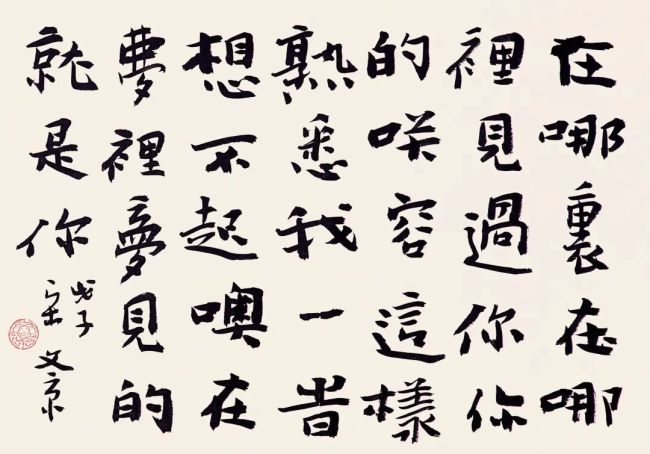 在哪裏在哪
裡見過你你
的咲容這樣
熟悉我一旹
想不起噢在
夢裡夢見的
就是你
戊子
宋文京